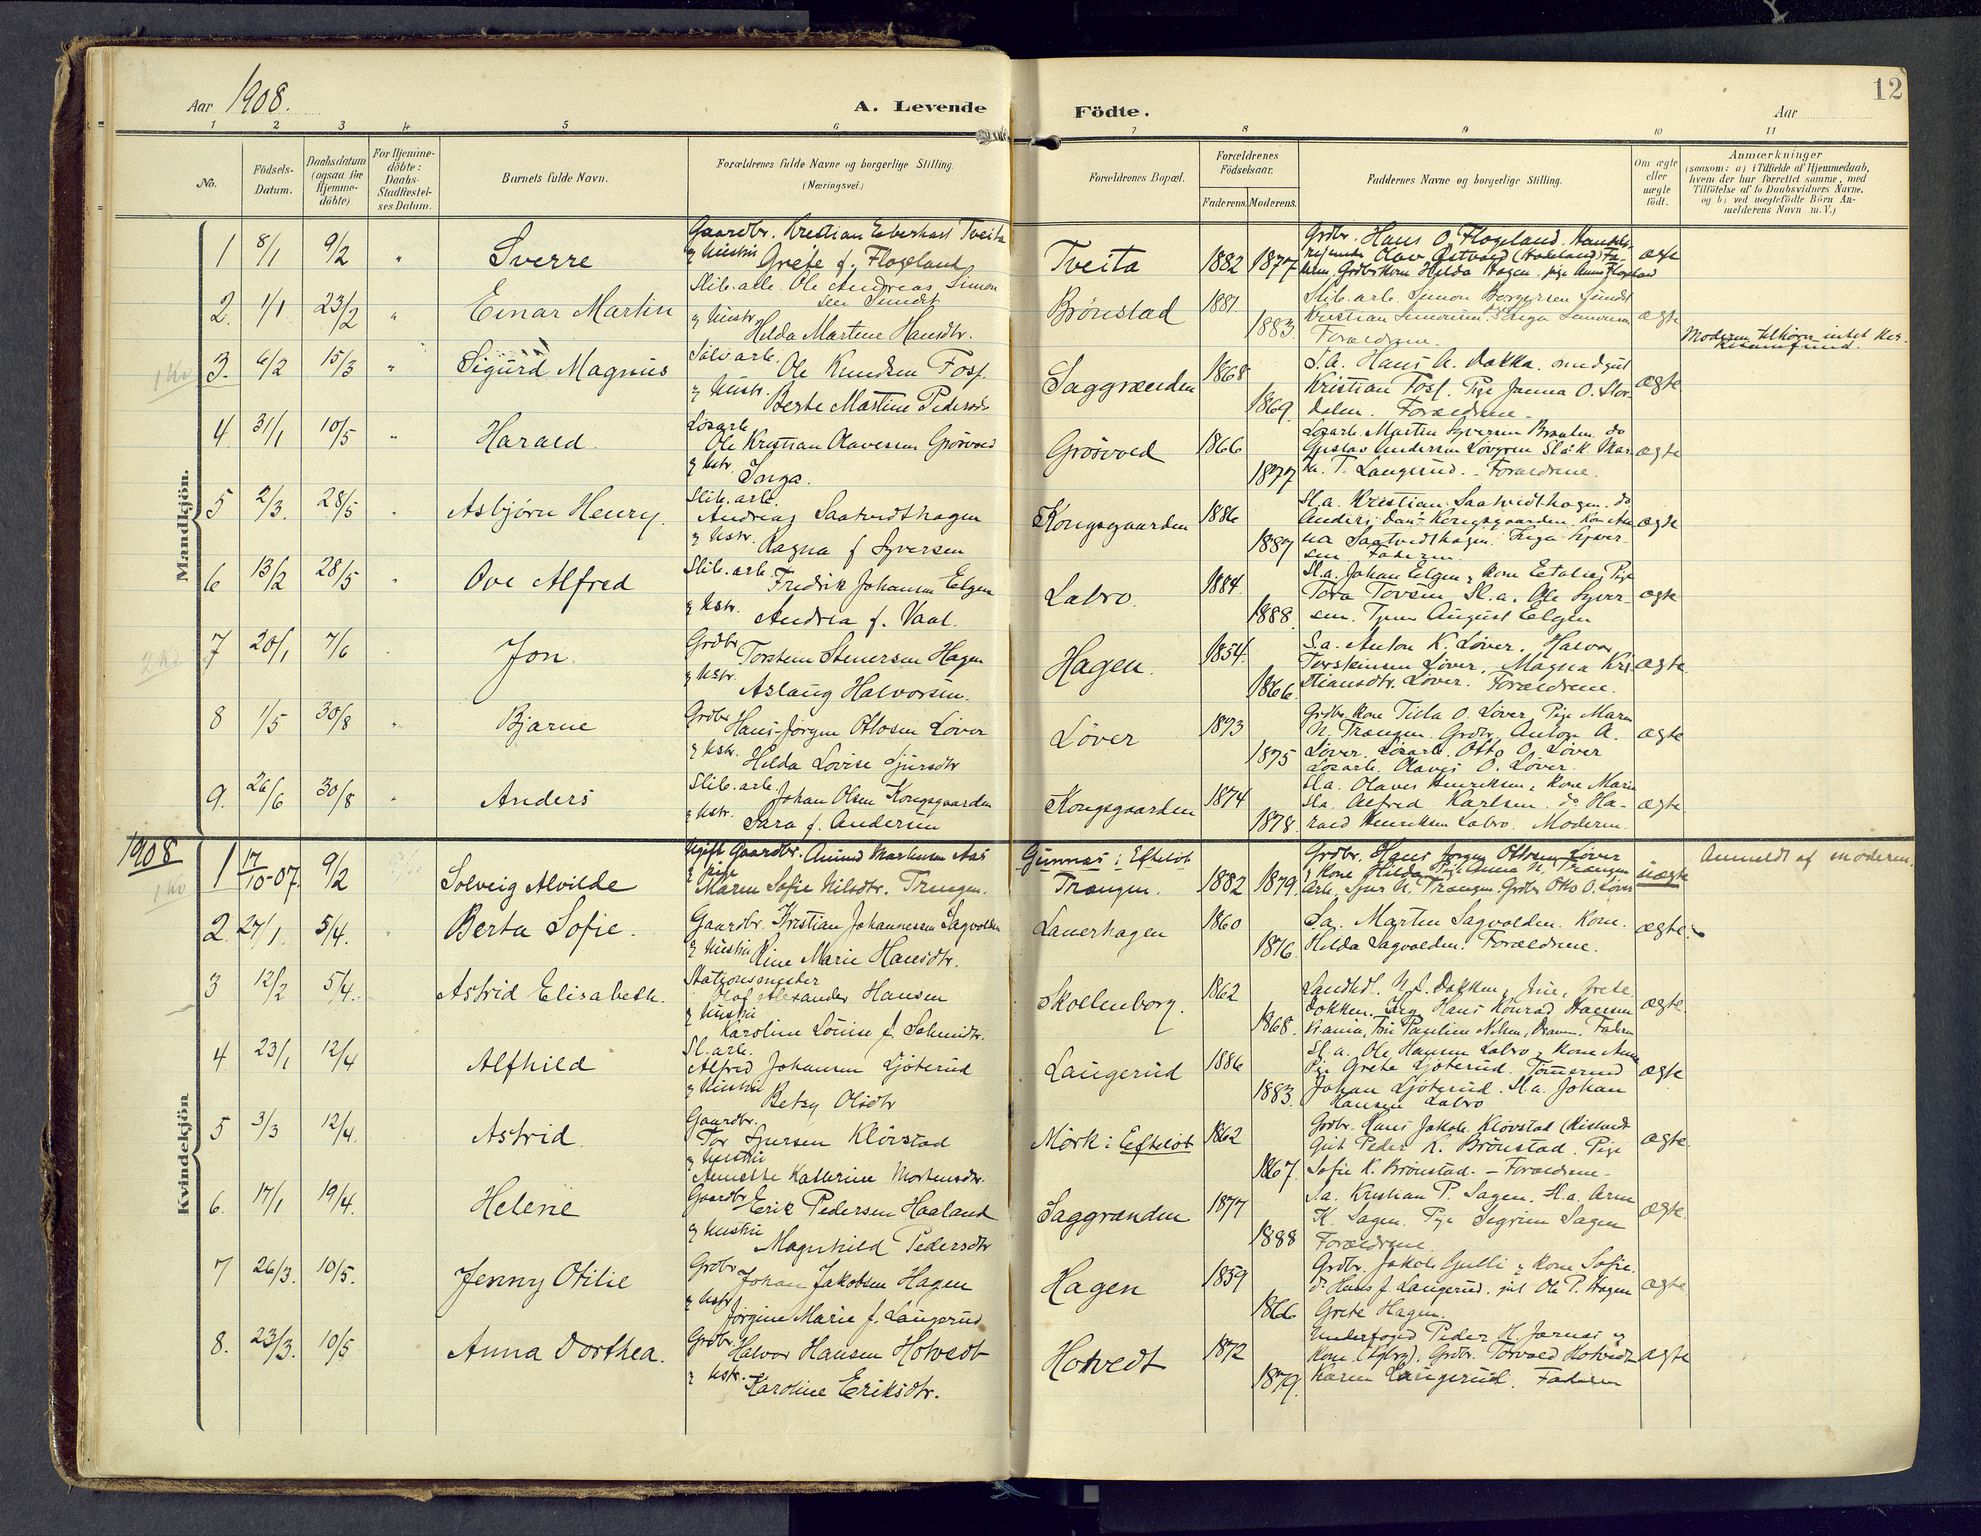 Aar 1908. A. Levende Födte. Aar 12
1 2 3 4 5 6 7 8 9 10 11
No.
Födsels-Datum.
Daabsdatum (ogsaa for Hjemme-döbte)
For Hjemme-döbte: Daabs-Stadfæstel-ses Datum.
Barnets fulde Navn.
Forældrenes fulde Navne og borgerlige Stilling. (Næringsvei.)
Forældrenes Bopæl.
Forældrenes Födselsaar.
Faderens. Moderens.
Faddernes Navne og borgerlige Stilling.
Om ægte eller uægte födt.
Anmærkninger
(saasom: a) i Tilfælde af Hjemmedaab, hvem der har forrettet samme, med Tilföielse af to Daabsvidners Navne, og b) ved uægtefödte Börn Anmelderens Navn m. V.)
Mandkjön.
1 8/1 9/2 " Sverre
Gaardbr. Kristian Eberhart Tveita
& Hustru Grete f. Flogeland
Tveita 1882 1877
Grdbr. Hans O. Flogeland. Handels-
ægte
2. 1/1 23/2 " Einar Martin
Slib. arb. Ole Andreas Simon
sen Sundt
& Hustr. Hilda Martine Hansdtr.
Brönstad 1881. 1883.
Slib. arb. Simon Borgersen Sundt
Forældrene.
ægte
3. 6/2 15/3 " Sigurd Magnus
Sölvarb. Ole Knudsen Foss.
& Hustr. Berte Martine Pedersd.
Saggrænden 1868 1869.
S.a. Hans A. Dokka. unggut
Kristian Foss. Pige Janna O. Stor-
dalen. Forældrene.
ægte
Moderen tilhörer intet
4. 31/1 10/5 " Harald.
Lösarb. Ole Kristian Olavesen Grösvold
& Hstr. Inga.
Grösvold 1866 1877
Lösarb. Martin Syversen Braaten. do
Gustav Andersen Lövgren
T. Laugerud. - Forældrene.
ægte
5 2/3. 28/5 " Asbjörn Henry.
Slib. arb. Andreas Saatvedthagen
& Hstr. Ragna f Syversen
Kongsgaarden 1886 1887
Sl.a. Kristian Saatvedthagen. do
Saatvedthagen. Inga Syver-
sen Faderen
ægte
6 13/2 28/5 " Ove Alfred
Slib. arb. Fredrik Johansen Elgen
& Hstr. Andrea f. Vaal.
Labro. 1884. 1888.
Sl.a. Johan Elgen & kone Petalia, Pige
Tora Tovsen. Sl.a. Ole Syver-
sen. August Elgen
ægte
7 20/1 7/6 Jon.
Grdbr. Torstein Stenersen Hagen
& Hstr. Aslaug Halvorsen.
Hagen. 1854. 1866
S.a. Anton K. Löver. Halvor
Torsteinsen Löver, Magna Kri-
stiansdtr. Löver. Forældrene.
ægte
8 1/5 30/8 " Bjarne
Grdbr. Hans-Jörgen Ottosen Löver
& Hstr. Hilda Lovise Sjursdtr
Löver 1873 1875
Grdbr. kone Tilla O. Löver Pige Maren
N. Trangen. Grdbr. Anton A.
Löver. Lösarb. Otto O. Löver
Lösarb. Olaves O. Löver.
ægte
9. 26/6 30/8 " Anders
Slib. arb. Johan Olsen Kongsgaarden
& Hstr. Sara f. Andersen
Kongsgaarden 1874 1878.
Sl.a. Olaves Henriksen & kone Marie
Sl.a. Alfred Karlsen. do Ha-
rald Henriksen Labro. Moderen.
ægte.
1908
Kvindekjön
1 17/10-07. 9/2 Solveig Alvilde
Ugift Gaardbr. Amund Aas
& pige Maren Sofie Nilsdtr. Trangen.
Gunnas i Efteløt
Trangen. 1882 1879.
Grdbr. Hans Jorgen Ottosen Löver
& kone Hilda, Pige Anna N. Trangen
Arb. Sjur N. Trangen. Grdbr. Otto O. Löver
uægte
Anmeldt af moderen.
2. 27/1. 5/4. Berta Sofie.
Gaardbr. Kristian Johannesen Sagvolden
& Hustru Kine Marie Hansdtr.
Lauerhagen 1860 1876.
Sa. Martin Sagvolden. Kone.
Hilda Sagvolden. Forældrene.
ægte.
3 12/2 5/4. Astrid Elisabeth.
Stationsmester
Olaf Alexander Hansen
& Hustru Karoline Louise f. Schmidt.
Skollenborg. 1862 1868.
Landhdl. N. S. Dokken, Frue, Grete
Dokken. Hans Konrad Hansen
Krania, Fru Pauline Nilsen, Dramm. Faderen
ægte.
4. 23/1 12/4 Alfhild
Sl. arb. Alfred Johansen Ljöterud
& Hustru Betzy Olsdtr
Laugerud 1886 1883.
Sl. a. Ole Hansen Labro & kone Anna
Pige Grete Ljöterud. Tömmermd
Johan Ljöterud. Sl.a. Johan
Hansen Labro
ægte
5 3/3 12/4. Astrid.
Gaardbr. Tor Sjursen Klövstad
& Hustru Annette Katherine Mortensdtr.
Mörk i Efteløt 1862 1867.
Grdbr. Hans Jakob Klövstad
Gut Peder K. Brönstad. Pige
Sofie K. Brönstad. - Forældrene.
ægte.
6. 17/1 19/4. Helene
Gaardbr Erik Pedersen Haaland
& Hustru Magnhild Pedersdtr
Saggrænden 1877 1888
S.a. Kristian P. Sagen. H.a. Arne
K. Sagen. Pige Segrim Sagen
Forældrene
ægte.
7 26/3. 10/5. Jenny Otilie
Grdbr Johan Jakobsen Hagen
& Hstr Jörgine Marie f. Laugerud
Hagen 1859 1866
Grdbr. Jakob Gulli & kone Sofie.
do Hans J. Laugerud. gut Ole P. Hagen
Grete Hagen.
ægte
8. 23/3. 10/5. Anna Dorthea.
Grdbr. Halvor Hansen Hotvedt
& Hstr. Karoline Eriksdtr.
Hotvedt 1872 1879.
Underfoged Peder H. Jarnæs &
kone. Grdbr. Torvald Hotvedt
Karen Laugerud. Faderen
ægte